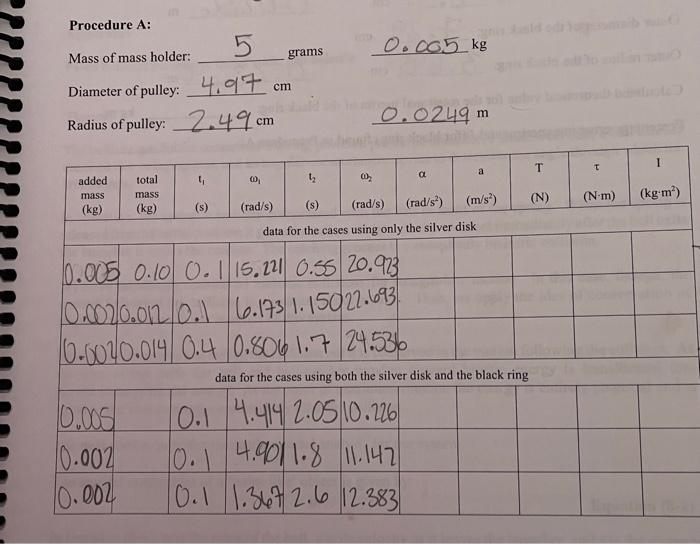 Procedure A:
Mass of mass holder: 5 grams 0.005 kg
Diameter of pulley: 4.97 cm
Radius of pulley: 2.49 cm 0.0249 m
added mass (kg) total mass (kg) t₁ (s) ω₁ (rad/s) t₂ (s) ω₂ (rad/s) α (rad/s²) a (m/s²) T (N) τ (N·m) I (kg·m²)
data for the cases using only the silver disk
0.005 0.10 0.1 15.221 0.55 20.923
0.002 0.012 0.1 6.173 1.150 22.693
0.002 0.014 0.4 0.806 1.7 24.536
data for the cases using both the silver disk and the black ring
0.005 0.1 4.414 2.05 10.226
0.002 0.1 4.901 1.8 11.147
0.002 0.1 1.367 2.6 12.383